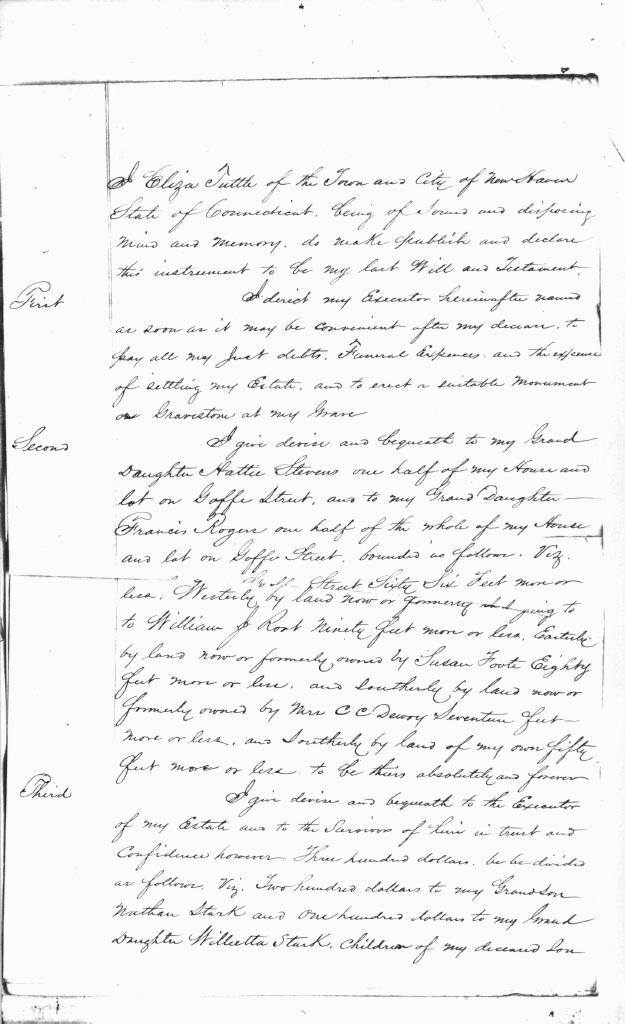 I Eliza Tuttle of the Town and City of New Haven
State of Connecticut. being of sound and disposing
mind and memory. do make publish and declare
this instrument to be my last Will and Testament.
First
I direct my Executor hereinafter named
as soon as it may be convenient after my decease. to
pay all my just debts. Funeral Expences. and the expense
of settling my Estate. and to erect a suitable Monument
or Gravestone at my Grave
Second
I give devise and bequeath to my Grand
Daughter Hattie Stevens one half of my House and
lot on Goffe Street, and to my Grand Daughter
Francis Rogers one half of the whole of my House
and lot on Goffe Street, bounded as follows. Viz.
Street Sixty Six Feet more or
less. Westerly by land now or formerly to
to William J Root Ninety feet more or less. Easterly
by land now or formerly owned by Susan Foote Eighty
feet more or less. and Southerly by land now or
formerly owned by Mrs C C Dewey Seventeen feet
more or less. and Southerly by land of my own fifty
feet more or less to be thiers absolutely and forever
Third
I give devise and bequeath to the Executor
of my Estate and to the Survivors of him in trust and
Confidence however Three hundred dollars. be be divided
as follows. Viz. Two hundred dollars to my Grandson
Nathan Stark and One hundred dollars to my Grand
Daughter Willietta Stark. Children of my deceased Son